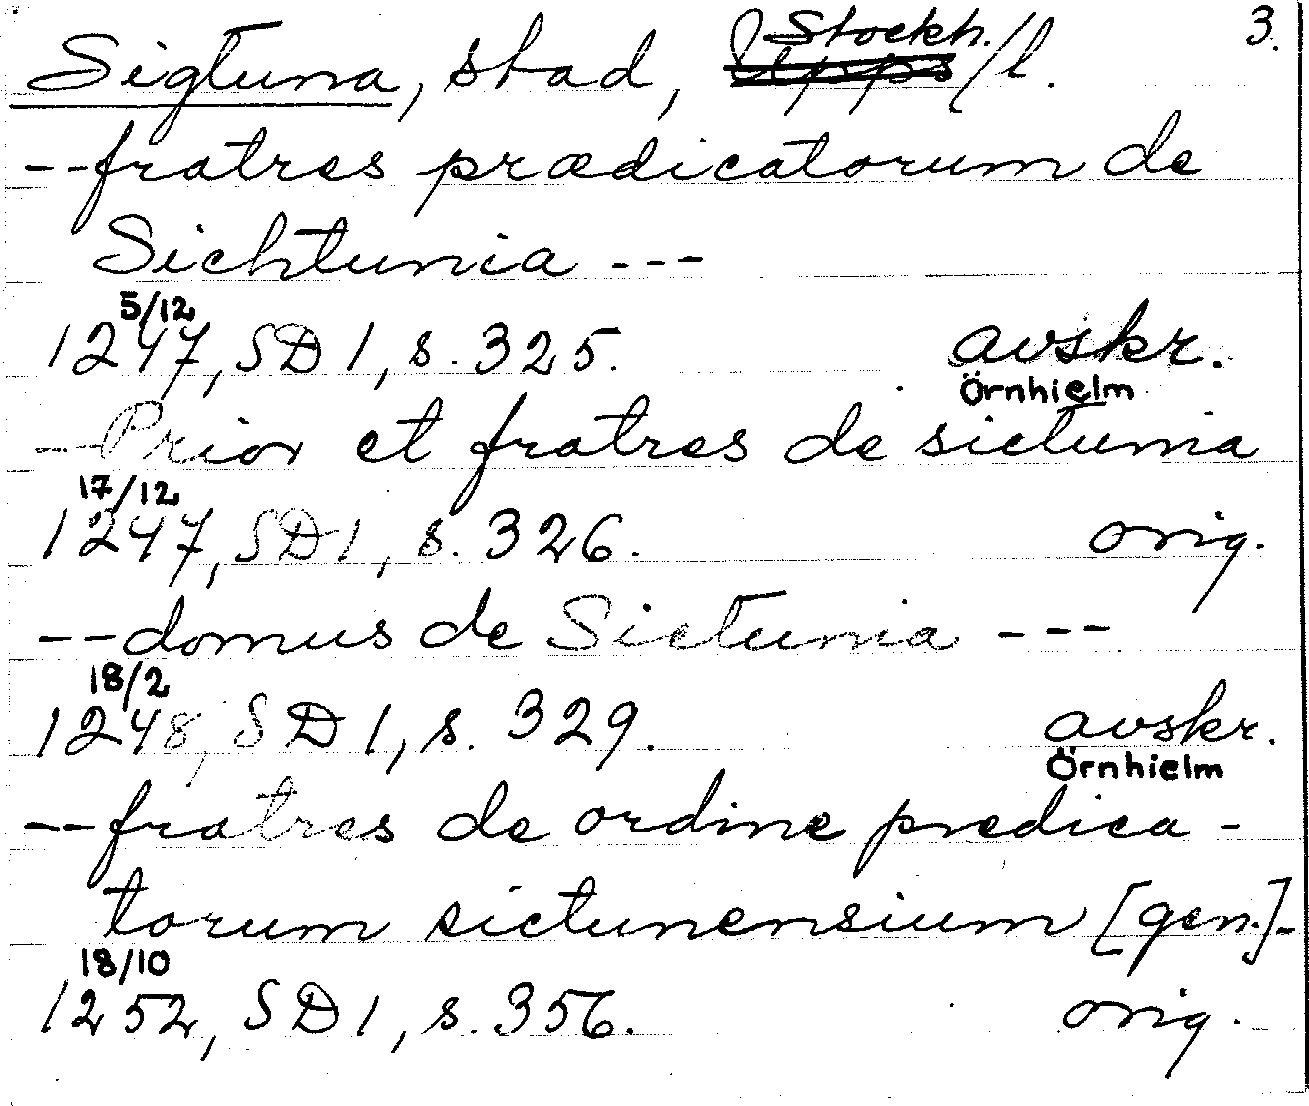 3.
Sigtuna, stad, Stockh./l.
--fratres prædicatorum de
Sichtunia ---
5/12
1247, SD 1, s. 325. avskr.
Örnhielm
--Prior et fratres de sictunia
17/12
1247, SD 1, s. 326. orig.
--domus de Sictunia ---
18/2
1248, SD 1, s. 329. avskr.
Örnhielm
--fratres de ordine predica-
torum sictunensium [gen.]-
18/10
1252, SD 1, s. 356. orig.